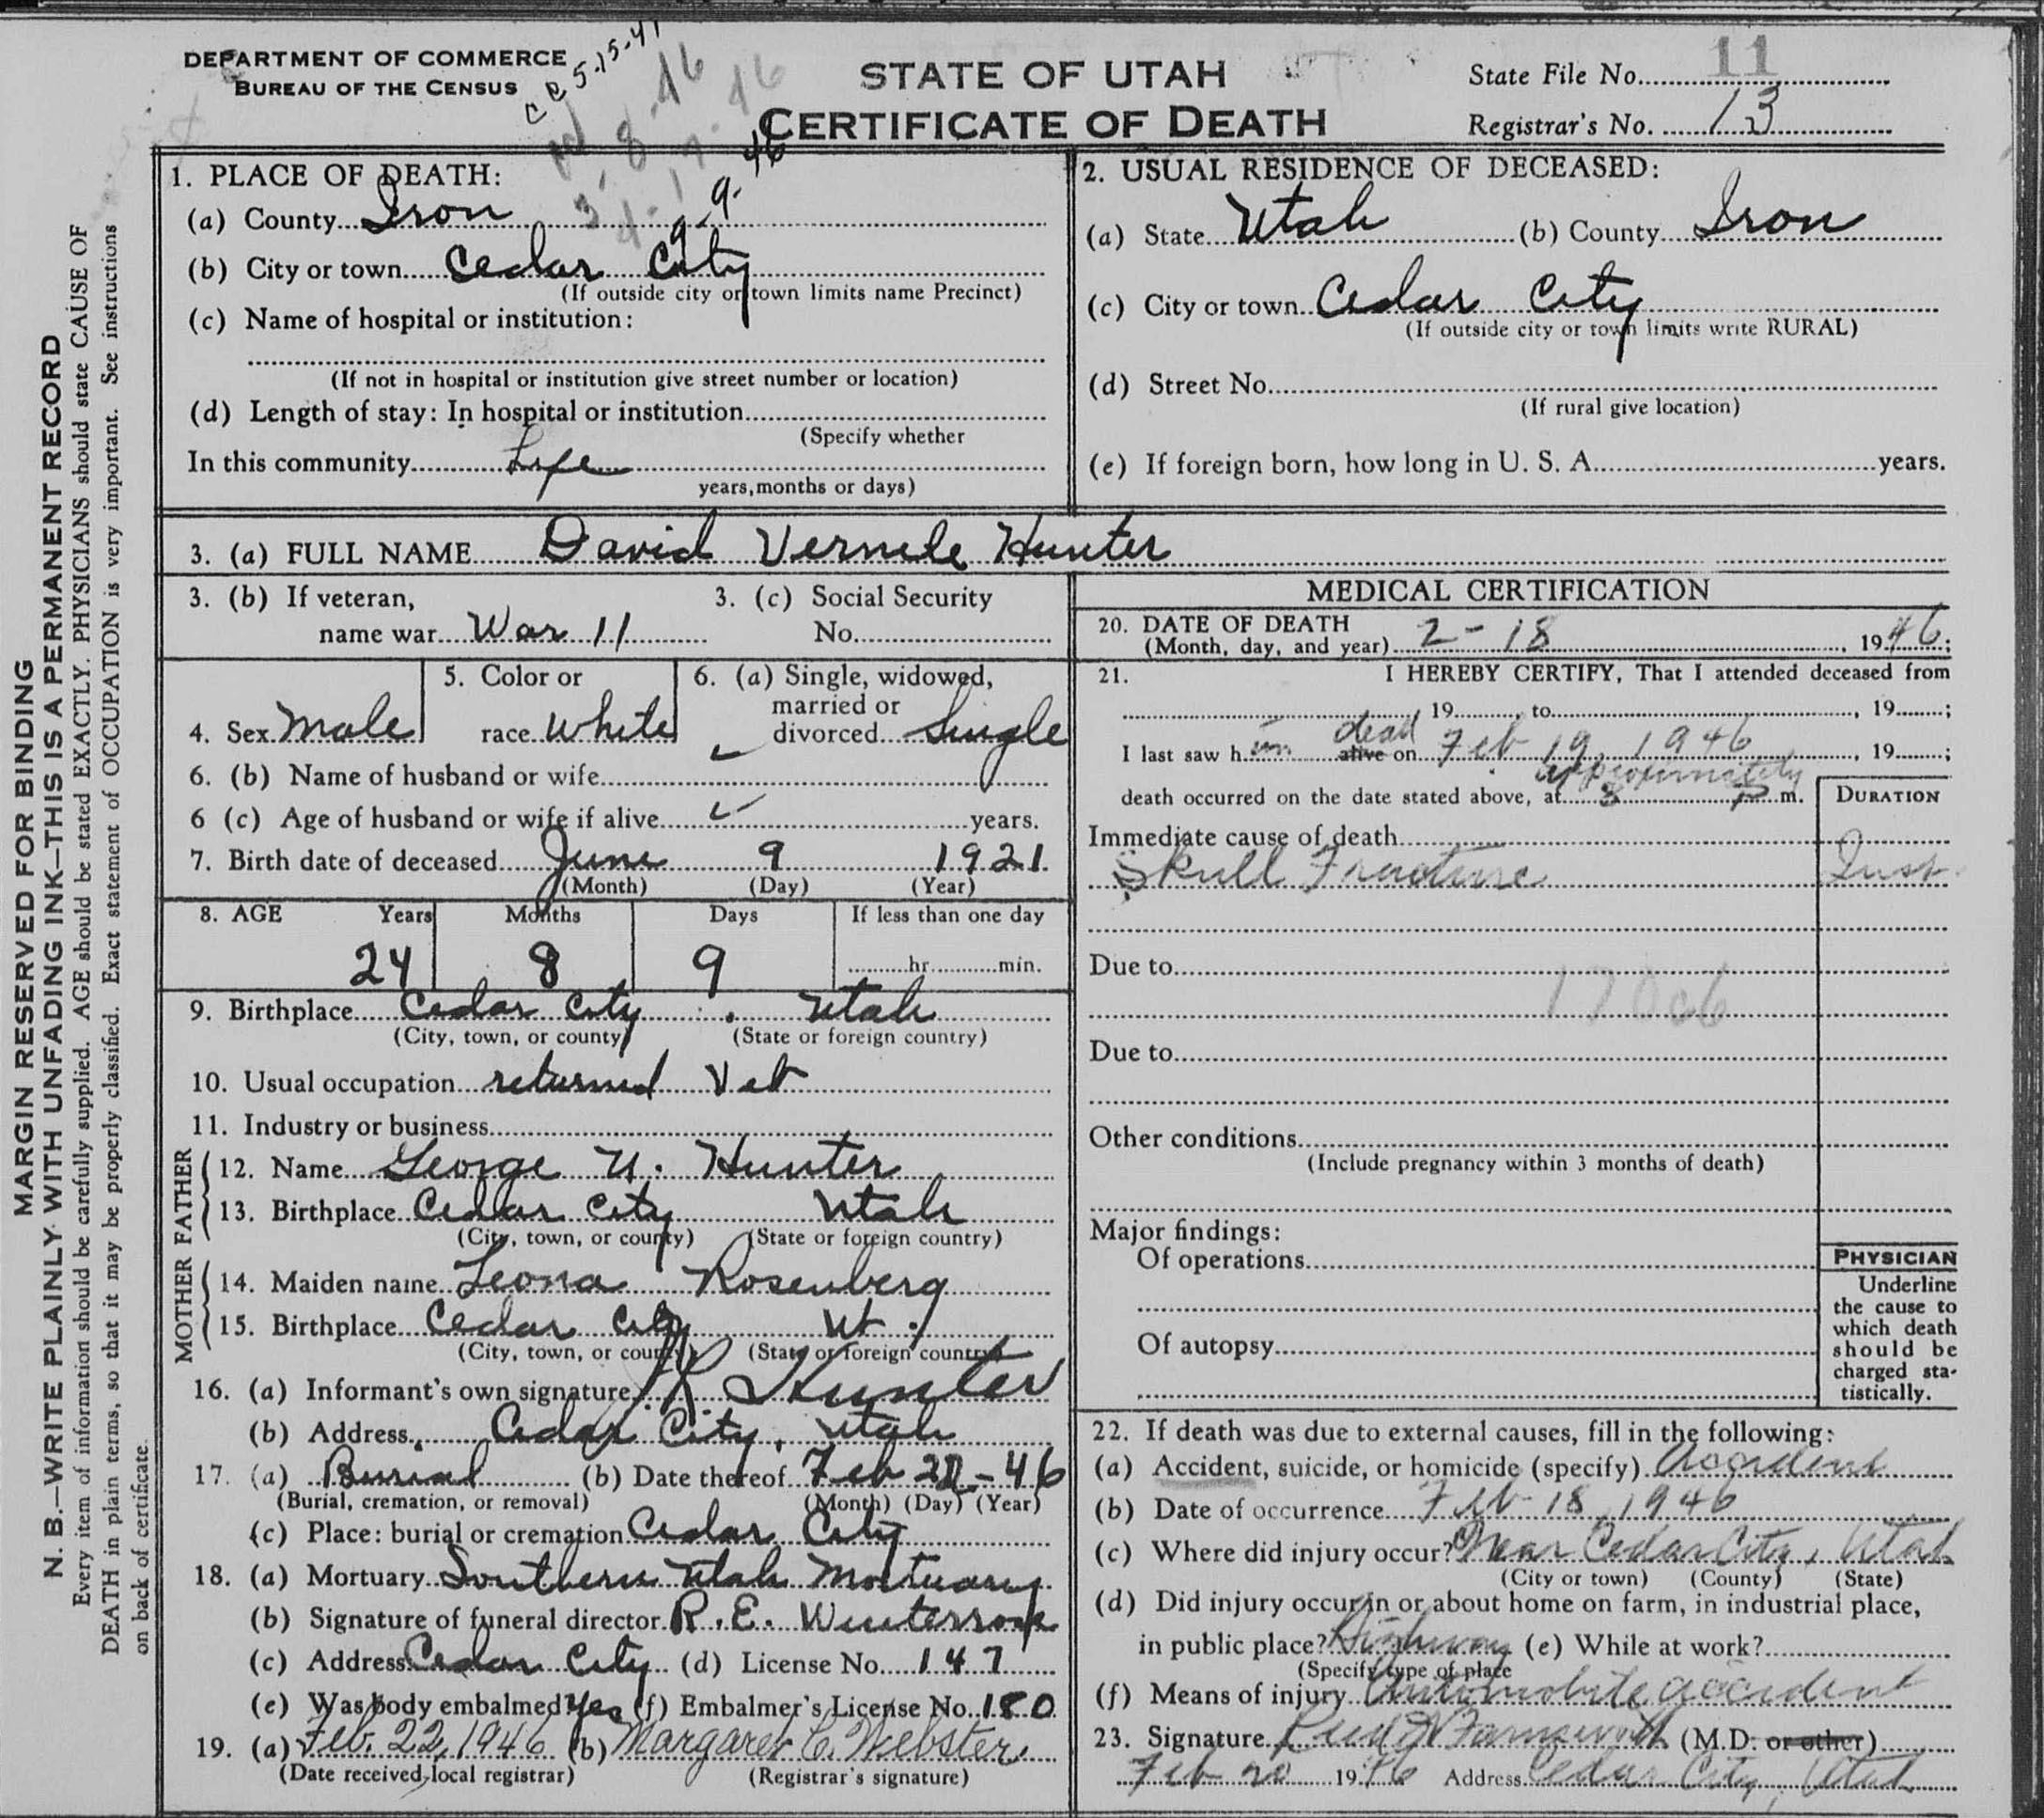 DEPARTMENT OF COMMERCE
BUREAU OF THE CENSUS
STATE OF UTAH
CERTIFICATE OF DEATH
State File No. 11
Registrar's No. 13
MARGIN RESERVED FOR BINDING
N. B.—WRITE PLAINLY WITH UNFADING INK—THIS IS A PERMANENT RECORD
Every item of information should be carefully supplied. AGE should be stated EXACTLY. PHYSICIANS should state CAUSE OF
DEATH in plain terms, so that it may be properly classified. Exact statement of OCCUPATION is very important. See instructions
on back of certificate.
1. PLACE OF DEATH:
(a) County Iron
(b) City or town Cedar City
(If outside city or town limits name Precinct)
(c) Name of hospital or institution:
(If not in hospital or institution give street number or location)
(d) Length of stay: In hospital or institution
(Specify whether
In this community Life
years, months or days)
2. USUAL RESIDENCE OF DECEASED:
(a) State Utah (b) County Iron
(c) City or town Cedar City
(If outside city or town limits write RURAL)
(d) Street No.
(If rural give location)
(e) If foreign born, how long in U. S. A. years.
3. (a) FULL NAME David Vernele Hunter
3. (b) If veteran, 3. (c) Social Security
name war War 11 No.
4. Sex Male 5. Color or race White 6. (a) Single, widowed, married or divorced Single
6. (b) Name of husband or wife
6 (c) Age of husband or wife if alive years.
7. Birth date of deceased June 9 1921
(Month) (Day) (Year)
8. AGE Years Months Days If less than one day
24 8 9 hr. min.
9. Birthplace Cedar City, Utah
(City, town, or county) (State or foreign country)
10. Usual occupation returned Vet
11. Industry or business
FATHER
12. Name George U. Hunter
13. Birthplace Cedar City Utah
(City, town, or county) (State or foreign country)
MOTHER
14. Maiden name Leona Rosenberg
15. Birthplace Cedar City Ut.
(City, town, or county) (State or foreign country)
16. (a) Informant's own signature R Hunter
(b) Address Cedar City, Utah
17. (a) Burial (b) Date thereof Feb 22-46
(Burial, cremation, or removal) (Month) (Day) (Year)
(c) Place: burial or cremation Cedar City
18. (a) Mortuary Southern Utah Mortuary
(b) Signature of funeral director R. E. Winterrose
(c) Address Cedar City (d) License No. 147
(e) Was body embalmed Yes (f) Embalmer's License No. 180
19. (a) Feb. 22, 1946 (b) Margaret C. Webster
(Date received local registrar) (Registrar's signature)
MEDICAL CERTIFICATION
20. DATE OF DEATH
(Month, day, and year) 2-18, 1946;
21. I HEREBY CERTIFY, That I attended deceased from
, 19 to , 19 ;
dead
I last saw him alive on Feb 19, 1946, 19 ;
approximately
death occurred on the date stated above, at 8 P m.
DURATION
Immediate cause of death
Skull Fracture Inst
Due to
Due to
Other conditions
(Include pregnancy within 3 months of death)
Major findings:
Of operations
Of autopsy
PHYSICIAN
Underline
the cause to
which death
should be
charged sta-
tistically.
22. If death was due to external causes, fill in the following:
(a) Accident, suicide, or homicide (specify) Accident
(b) Date of occurrence Feb 18, 1946
(c) Where did injury occur? Near Cedar City, Utah
(City or town) (County) (State)
(d) Did injury occur in or about home on farm, in industrial place,
in public place? Highway (e) While at work?
(Specify type of place
(f) Means of injury Automobile accident
23. Signature Farnsworth (M.D. or other)
Feb 20 1946 Address Cedar City, Utah